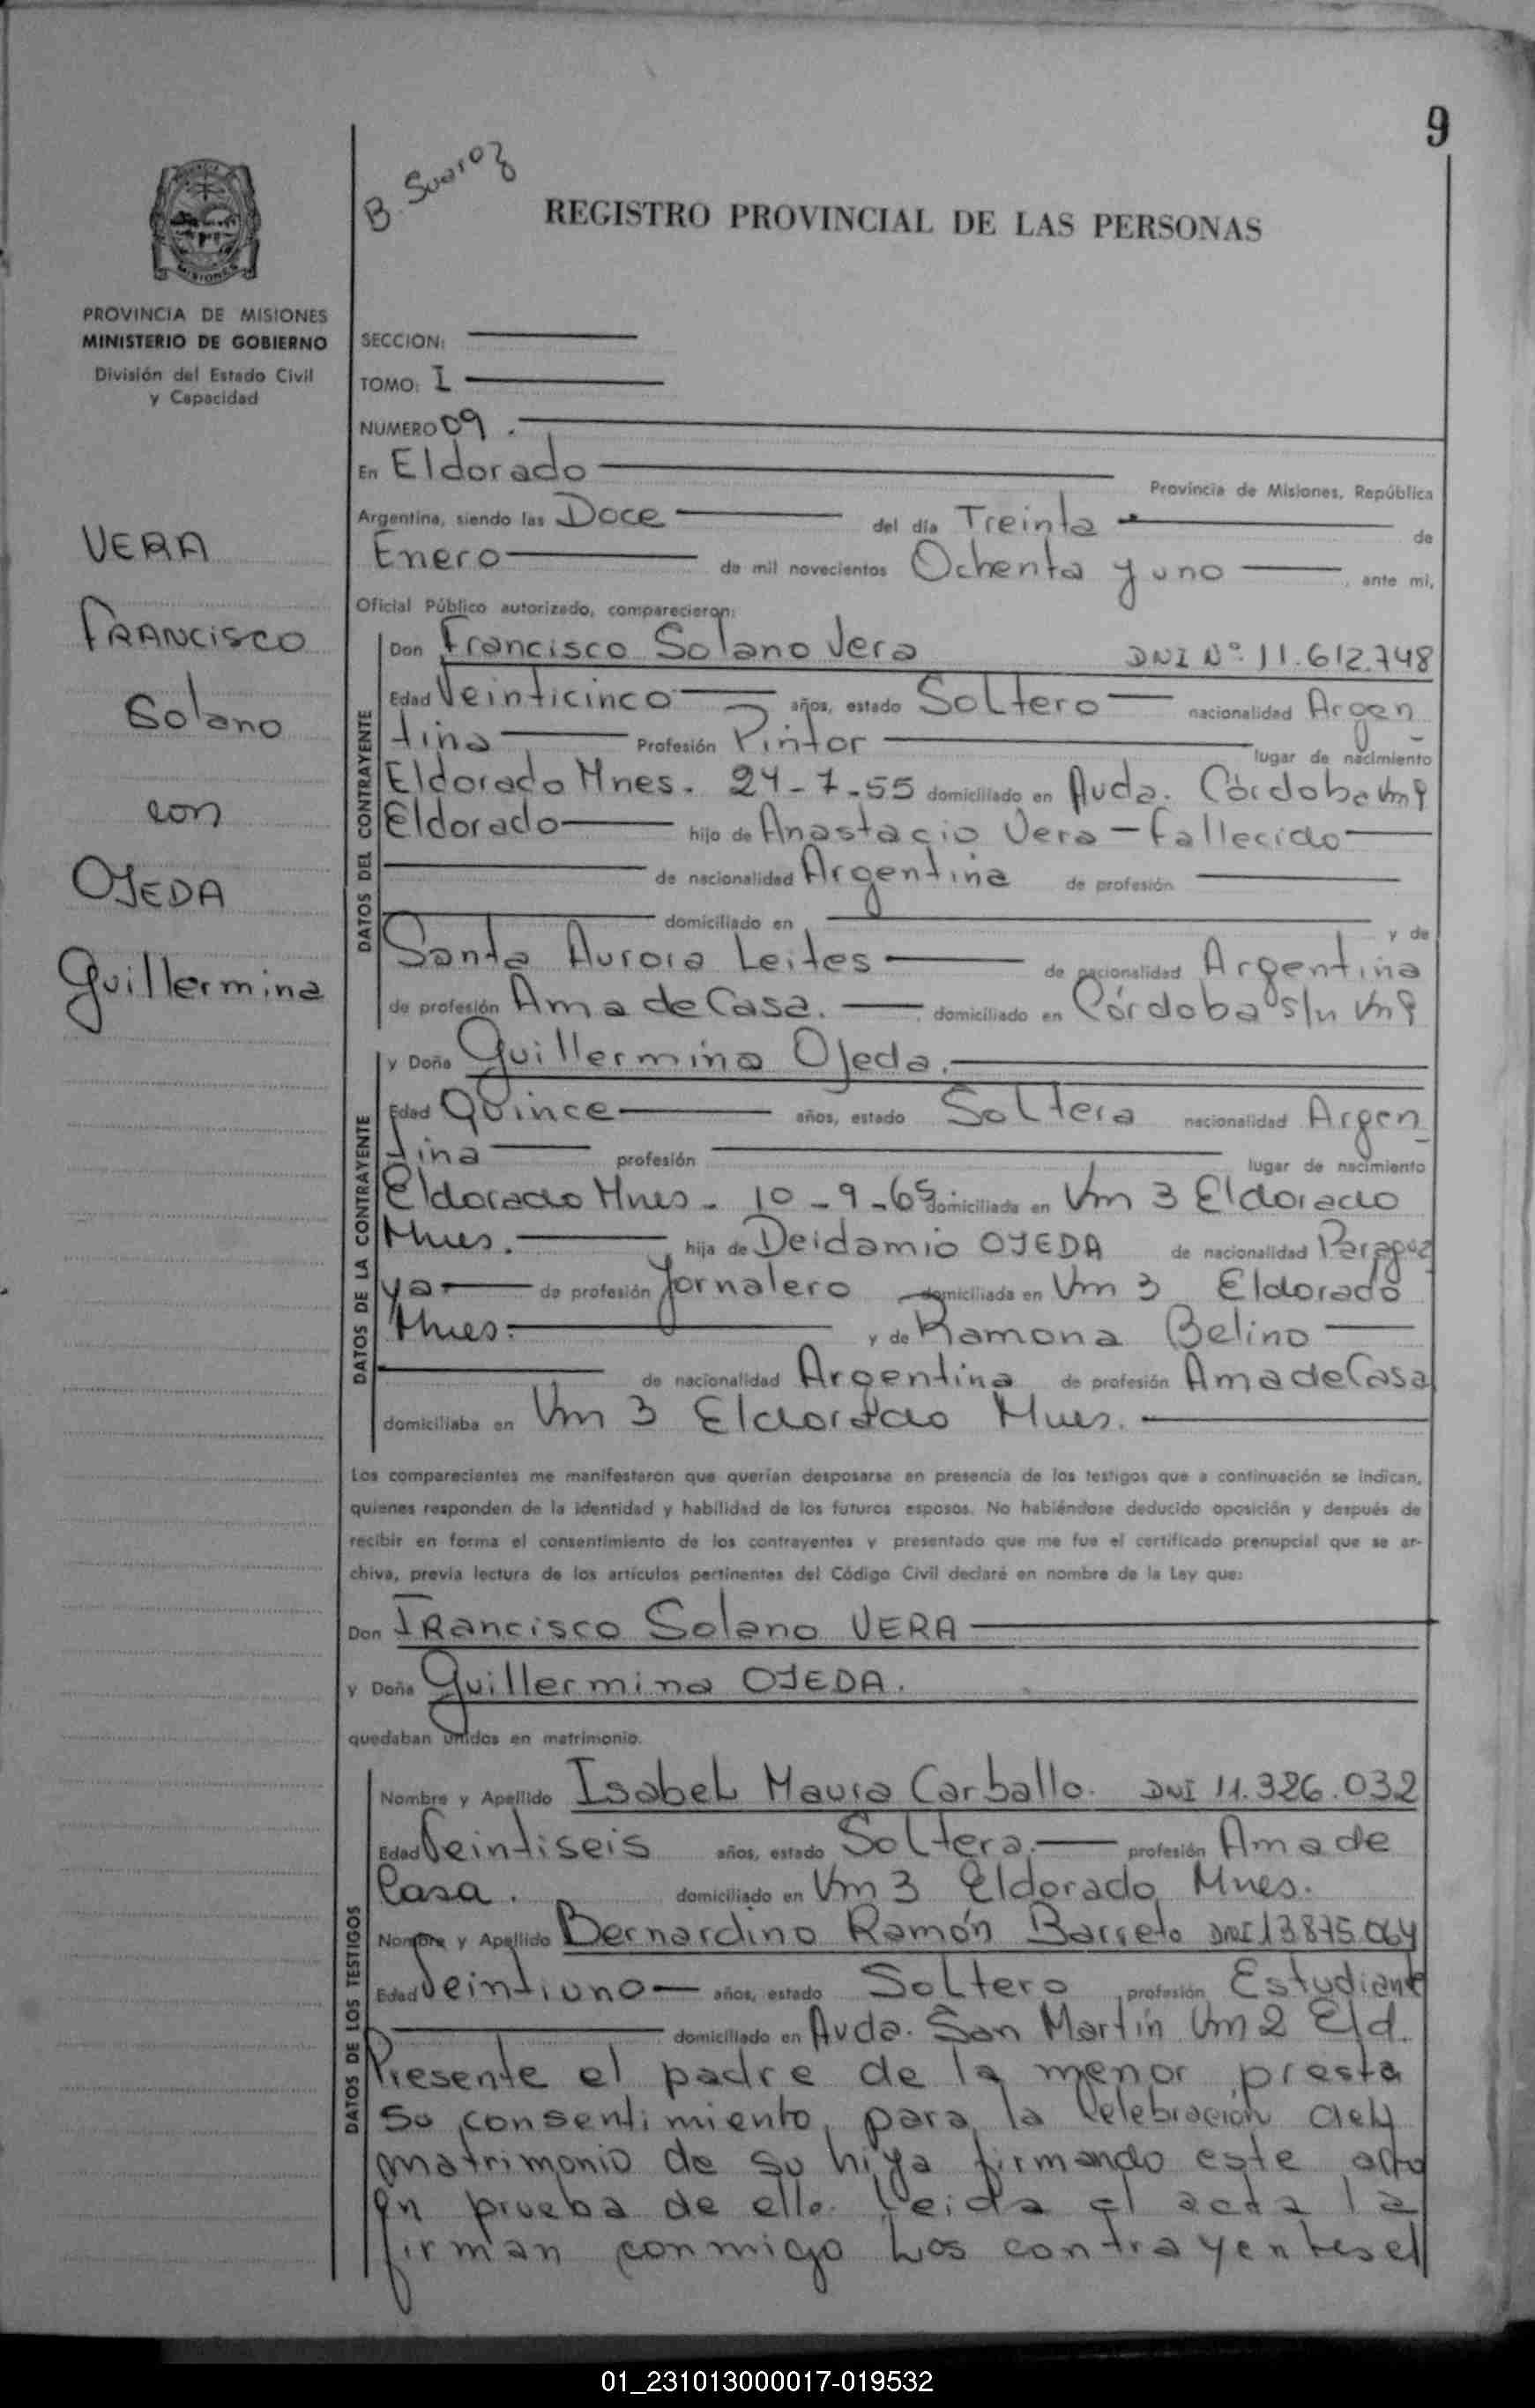 9
B. Suarez
REGISTRO PROVINCIAL DE LAS PERSONAS
MISIONES
PROVINCIA DE MISIONES
MINISTERIO DE GOBIERNO
División del Estado Civil
y Capacidad
VERA
FRANCISCO
Solano
con
OJEDA
Guillermina
SECCION:
TOMO: I
NUMERO 09.
En Eldorado Provincia de Misiones, República
Argentina, siendo las Doce del día Treinta de
Enero de mil novecientos Ochenta y uno, ante mi,
Oficial Público autorizado, comparecieron:
DATOS DEL CONTRAYENTE
Don Francisco Solano Vera DNI Nº 11.612.748
Edad Veinticinco años, estado Soltero nacionalidad Argen
tina Profesión Pintor lugar de nacimiento
Eldorado Mnes. 24-7-55 domiciliado en Avda. Córdoba Km 9
Eldorado hijo de Anastacio Vera - fallecido
de nacionalidad Argentina de profesión
domiciliado en y de
Santa Aurora Leites de nacionalidad Argentina
de profesión Ama de Casa. domiciliado en Córdoba s/n Km 9
DATOS DE LA CONTRAYENTE
y Doña Guillermina Ojeda.
Edad Quince años, estado Soltera nacionalidad Argen
tina profesión lugar de nacimiento
Eldorado Mnes - 10-9-65 domiciliada en Km 3 Eldorado
Mnes. hija de Deidamio OJEDA de nacionalidad Paragua
ya de profesión Jornalero domiciliada en Km 3 Eldorado
Mnes. y de Ramona Belino
de nacionalidad Argentina de profesión Ama de Casa
domiciliaba en Km 3 Eldorado Mnes.
Los comparecientes me manifestaron que querían desposarse en presencia de los testigos que a continuación se indican,
quienes responden de la identidad y habilidad de los futuros esposos. No habiéndose deducido oposición y después de
recibir en forma el consentimiento de los contrayentes y presentado que me fue el certificado prenupcial que se ar-
chiva, previa lectura de los artículos pertinentes del Código Civil declaré en nombre de la Ley que:
Don FRancisco Solano VERA
y Doña Guillermina OJEDA.
quedaban unidos en matrimonio.
DATOS DE LOS TESTIGOS
Nombre y Apellido Isabel Maura Carballo. DNI 11.326.032
Edad Veintiseis años, estado Soltera. profesión Ama de
Casa. domiciliado en Km 3 Eldorado Mnes.
Nombre y Apellido Bernardino Ramón Barreto DNI 13875.064
Edad Veintiuno años, estado Soltero profesión Estudiante
domiciliado en Avda. San Martín Km 2 Eld.
Presente el padre de la menor presta
su consentimiento para la Celebración del
matrimonio de su hija firmando este acto
en prueba de ello. Leida el acta la
firman conmigo Los contrayentes el
01_231013000017-019532